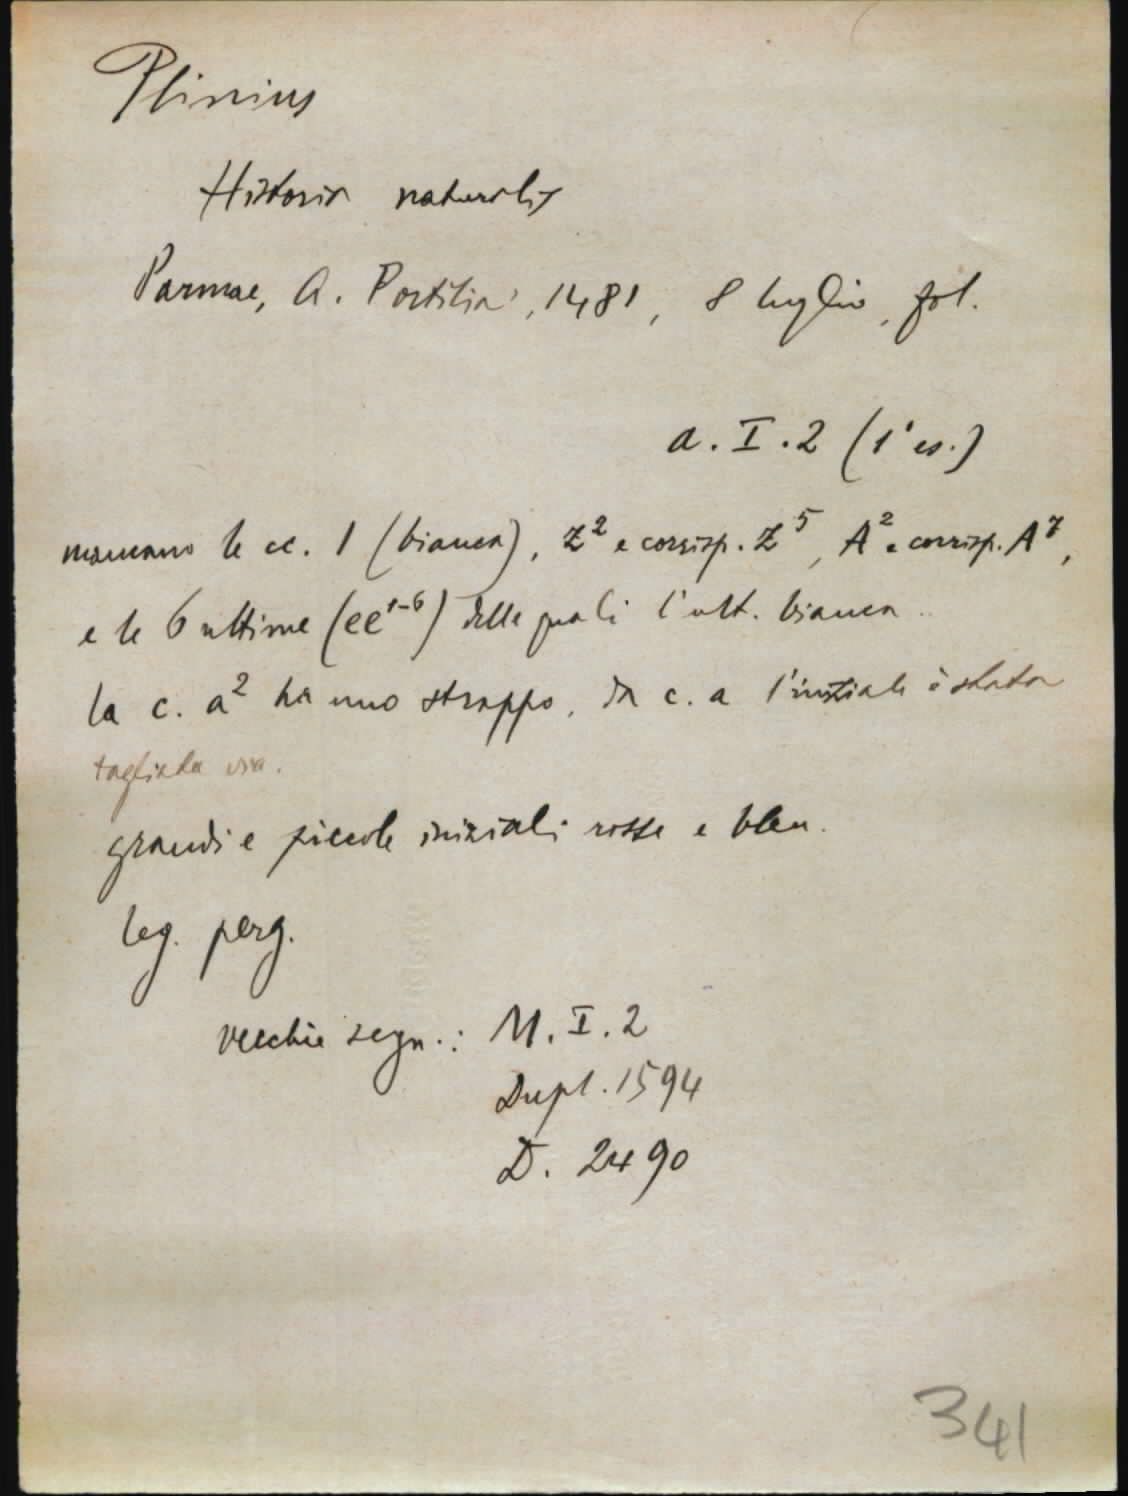 Plinius
Historia naturalis
Parmae, A. Portilia, 1481, 8 luglio, fol.
a. I. 2 (1° es.)
mancano le cc. 1 (bianca), z² e corrisp. z⁵, A² e corrisp. A⁷,
e le 6 ultime (ee¹⁻⁶) delle quali l'ult. bianca.
la c. a² ha uno strappo, da c. a l'iniziale è stata
tagliata via.
grandi e piccole iniziali rosse e bleu.
leg. perg.
vecchie segn.: M. I. 2
Dupl. 1594
D. 2490
341